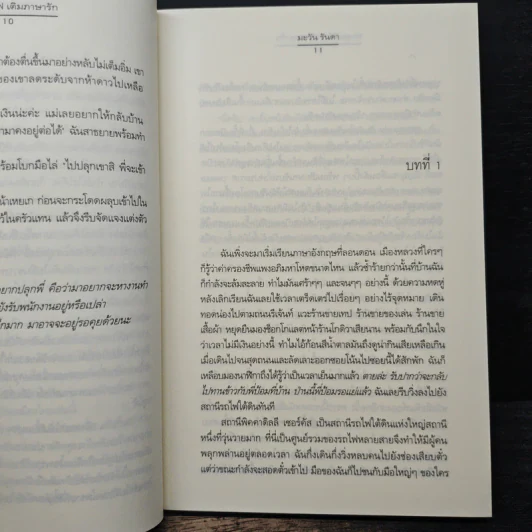 เติมภาษารัก
10
ต้องตื่นขึ้นมาอย่างหลับไม่เต็มอิ่ม เขา
ของเขาลดระดับจากห้าดาวไปเหลือ
เงินน่ะค่ะ แม่เลยอยากให้กลับบ้าน
มาคงอยู่ต่อได้' ฉันสาธยายพร้อมทำ
ร้อมโบกมือไล่ 'ไปปลุกเขาสิ พี่จะเข้า
น้าเหยเก ก่อนจะกระโดดผลุบเข้าไปใน
ว้ในครัวแทน แล้วจึงรีบจัดแจงแต่งตัว
อยากปลุกพี่ คือว่ามาอยากจะหางานทำ
ยังรับพนักงานอยู่หรือเปล่า
มาก มาอาจจะอยู่รอคุยด้วยนะ
มะวัน รันดา
11
บทที่ 1
ฉันเพิ่งจะมาเริ่มเรียนภาษาอังกฤษที่ลอนดอน เมืองหลวงที่ใครๆ
ก็รู้ว่าค่าครองชีพแพงอภิมหาโหดขนาดไหน แล้วซ้ำร้ายกว่านั้นที่บ้านฉัน
ก็กำลังจะล้มละลาย ทำไมมันเศร้าๆๆ และจนๆๆ อย่างนี้ ด้วยความหดหู่
หลังเลิกเรียนฉันเลยใช้เวลาเตร็ดเตร่ไปเรื่อยๆ อย่างไร้จุดหมาย เดิน
ทอดน่องไปตามถนนรีเจ้นท์ แวะร้านขายเทป ร้านขายของเล่น ร้านขาย
เสื้อผ้า หยุดยืนมองช็อกโกแลตหน้าร้านโกดิวาเสียนาน พร้อมกับนึกในใจ
ว่าเวลาไม่มีเงินอย่างนี้ ทำไมไอ้ก้อนสีน้ำตาลมันถึงดูน่ากินเสียเหลือเกิน
เมื่อเดินไปจนสุดถนนและลัดเลาะออกซอยโน้นไปซอยนี้ได้สักพัก ฉันก็
เหลือบมองนาฬิกาถึงได้รู้ว่าเป็นเวลาเย็นมากแล้ว ตายล่ะ รับปากว่าจะกลับ
ไปทานข้าวกับพี่ป้อมที่บ้าน ป่านนี้พี่ป้อมรอแย่แล้ว ฉันเลยรีบวิ่งลงไปยัง
สถานีรถไฟใต้ดินทันที
สถานีพิคคาดิลลี เซอร์คัส เป็นสถานีรถไฟใต้ดินแห่งใหญ่สถานี
หนึ่งที่วุ่นวายมาก ที่นี่เป็นศูนย์รวมของรถไฟหลายสายจึงทำให้มีผู้คน
พลุกพล่านอยู่ตลอดเวลา ฉันกึ่งเดินกึ่งวิ่งหลบคนไปยังช่องเสียบตั๋ว
แต่ว่าขณะกำลังจะสอดตั๋วเข้าไป มือของฉันก็ไปชนกับมือใหญ่ๆ ของใคร